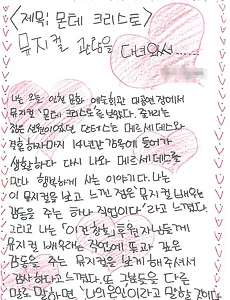 <제목: 몬테 크리스토>
뮤지컬 관람을 다녀와서......
나는 오늘 인천 문화 예술회관 대공연장에서
뮤지컬 '몬테 크리스토'를 보았다. 줄거리는
젊은 선원이였던 단테스는 메르세데스와
결혼하자마자 14년간 감옥에 들어가
생활하다 다시 나와 메르세데스를
만나 행복하게 사는 이야기다. 나는
이 뮤지컬을 보고 느낀 점은 '뮤지컬 배우는
감동을 주는 하나 직업이다' 라고 느꼈다.
그리고 나는 '이건 창호' 후원자님들께
뮤지컬 배우라는 직업에 또과 같은
감동을 주는 뮤지컬을 보게 해주셔서
감사하다고 느꼈다. 또 그분들을 다른
말로 말하면, '나의 은인'이라고 말할 것이다